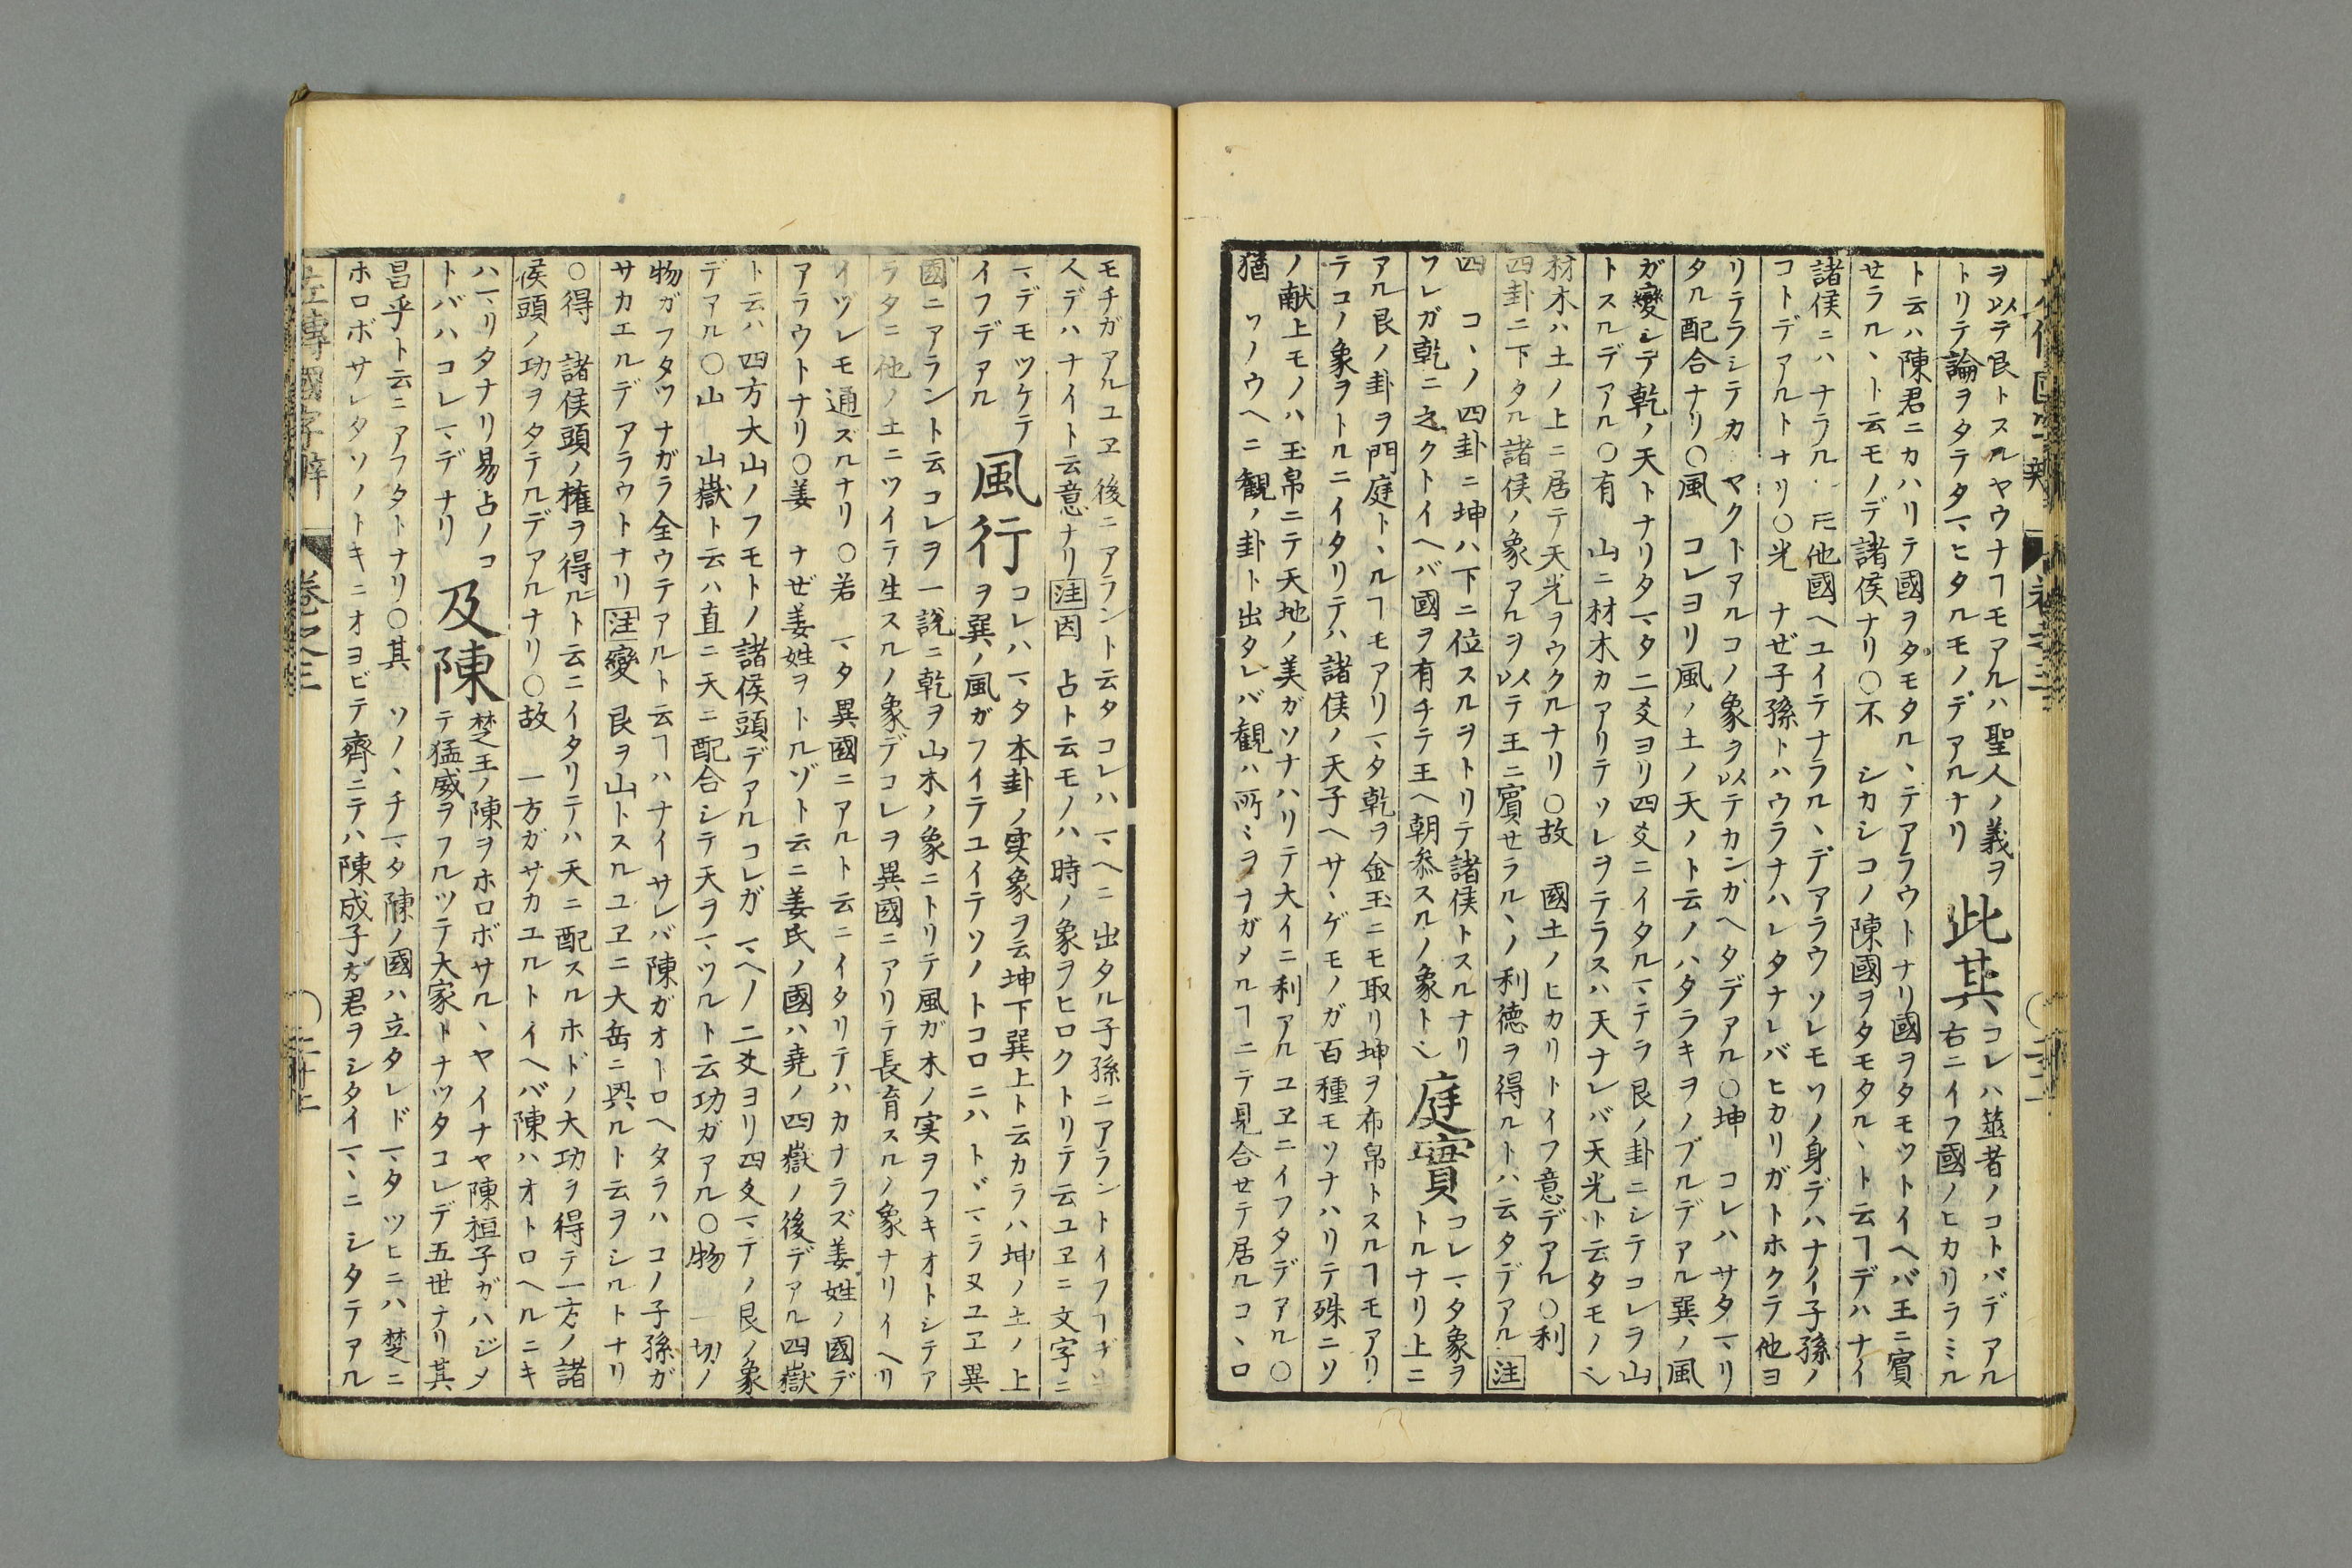 ヲ以テ艮トスルヤウナヿモアルハ聖人ノ義ヲ
トリテ論ヲタテタマヒタルモノデアルナリ
此其
コレハ筮者ノコトバデアル
右ニイフ國ノヒカリヲミル
ト云ハ陳君ニカハリテ國ヲタモタル、テアラウトナリ國ヲタモツトイヘバ王ニ賓
セラル、ト云モノデ諸侯ナリ○不 シカシコノ陳國ヲタモタル、ト云ヿデハナイ
諸侯ニハナラル 𪜈他國ヘユイテナラル、デアラウソレモソノ身デハナイ子孫ノ
コトデアルトナリ○光 ナゼ子孫トハウラナハレタナレバヒカリガトホクテ他ヨ
リテラシテカ ヤクトアルコノ象ヲ以テカンガヘタデアル○坤 コレハサダマリ
タル配合ナリ○風 コレヨリ風ノ土ノ天ノト云ノハタラキヲノブルデアル巽ノ風
ガ變シテ乾ノ天トナリタマタ二爻ヨリ四爻ニイタルマテヲ艮ノ卦ニシテコレヲ山
トスルデアル○有 山ニ材木カアリテソレヲテラスハ天ナレバ天光ト云タモノシ
材木ハ土ノ上ニ居テ天光ヲウクルナリ○故 國土ノヒカリトイフ意デアル○利
四卦ニ下タル諸侯ノ象アルヲ以テ王ニ賓セラル、ノ利徳ヲ得ルトハ云タデアル 注
四 コ、ノ四卦ニ坤ハ下ニ位スルヲトリテ諸侯トスルナリ
ソレガ乾ニ之クトイヘバ國ヲ有チテ王ヘ朝叅スルノ象トシ
庭實
コレマタ象ヲ
トルナリ上ニ
アル艮ノ卦ヲ門庭ト、ルヿモアリマタ乾ヲ金玉ニモ取リ坤ヲ布帛トスルヿモアリ
テコノ象ヲトルニイタリテハ諸侯ノ天子ヘサ、ゲモノガ百種モソナハリテ殊ニソ
ノ献上モノハ玉帛ニテ天地ノ美ガソナハリテ大イニ利アルユヱニイフタデアル○
猶 ソノウヘニ觀ノ卦ト出タレバ觀ハ所ミヲナガメルヿニテ見合セテ居ルコ、ロ
モチガアルユヱ後ニアラント云タコレハマヘニ出タル子孫ニアラントイフヿ
人デハナイト云意ナリ 注 因 占ト云モノハ時ノ象ヲヒロクトリテ云ユヱニ文字ニ
マデモツケテ
イフデアル
風行
コレハマタ本卦ノ実象ヲ云坤下巽上ト云カラハ坤ノ土ノ上
ヲ巽ノ風ガフイテユイテソノトコロニハトドマラヌユヱ異
國ニアラント云コレヲ一説ニ乾ヲ山木ノ象ニトリテ風ガ木ノ実ヲフキオトシテア
ラタニ他ノ土ニツイテ生スルノ象デコレヲ異國ニアリテ長育スルノ象ナリイヘリ
イヅレモ通ズルナリ○若 マタ異國ニアルト云ニイタリテハカナラズ姜姓ノ國デ
アラウトナリ○姜 ナゼ姜姓ヲトルゾト云ニ姜氏ノ國ハ堯ノ四嶽ノ後デアル四嶽
ト云ハ四方大山ノフモトノ諸侯頭デアルコレガマヘノ二爻ヨリ四爻マテノ艮ノ象
デアル○山 山嶽ト云ハ直ニ天ニ配合シテ天ヲマツルト云功ガアル○物 一切ノ
物ガフタツナガラ全ウテアルト云ヿハナイサレバ陳ガオーロヘタラハコノ子孫ガ
サカエルデアラウトナリ 注 變 艮ヲ山トスルユヱニ大岳ニ與ルト云ヲシルトナリ
○得 諸侯頭ノ権ヲ得ルト云ニイタリテハ天ニ配スルホドノ大功ヲ得テ一方ノ諸
侯頭ノ功ヲタテルデアルナリ○故 一方ガサカユルトイヘバ陳ハオトロヘルニキ
ハマリタナリ易占ノコ
トバハコレマデナリ
及陳
楚王ノ陳ヲホロボサル、ヤイナヤ陳桓子ガハジメ
テ猛威ヲフルツテ大家トナツタコレデ五世ナリ其
昌乎ト云ニアフタトナリ○其 ソノ、チマタ陳ノ國ハ立タレドマタツヒニハ楚ニ
ホロボサレタソノトキニオヨビテ齊ニテハ陳成子ガ君ヲシタイマ、ニシタテアル
左傳國字解 巻之三